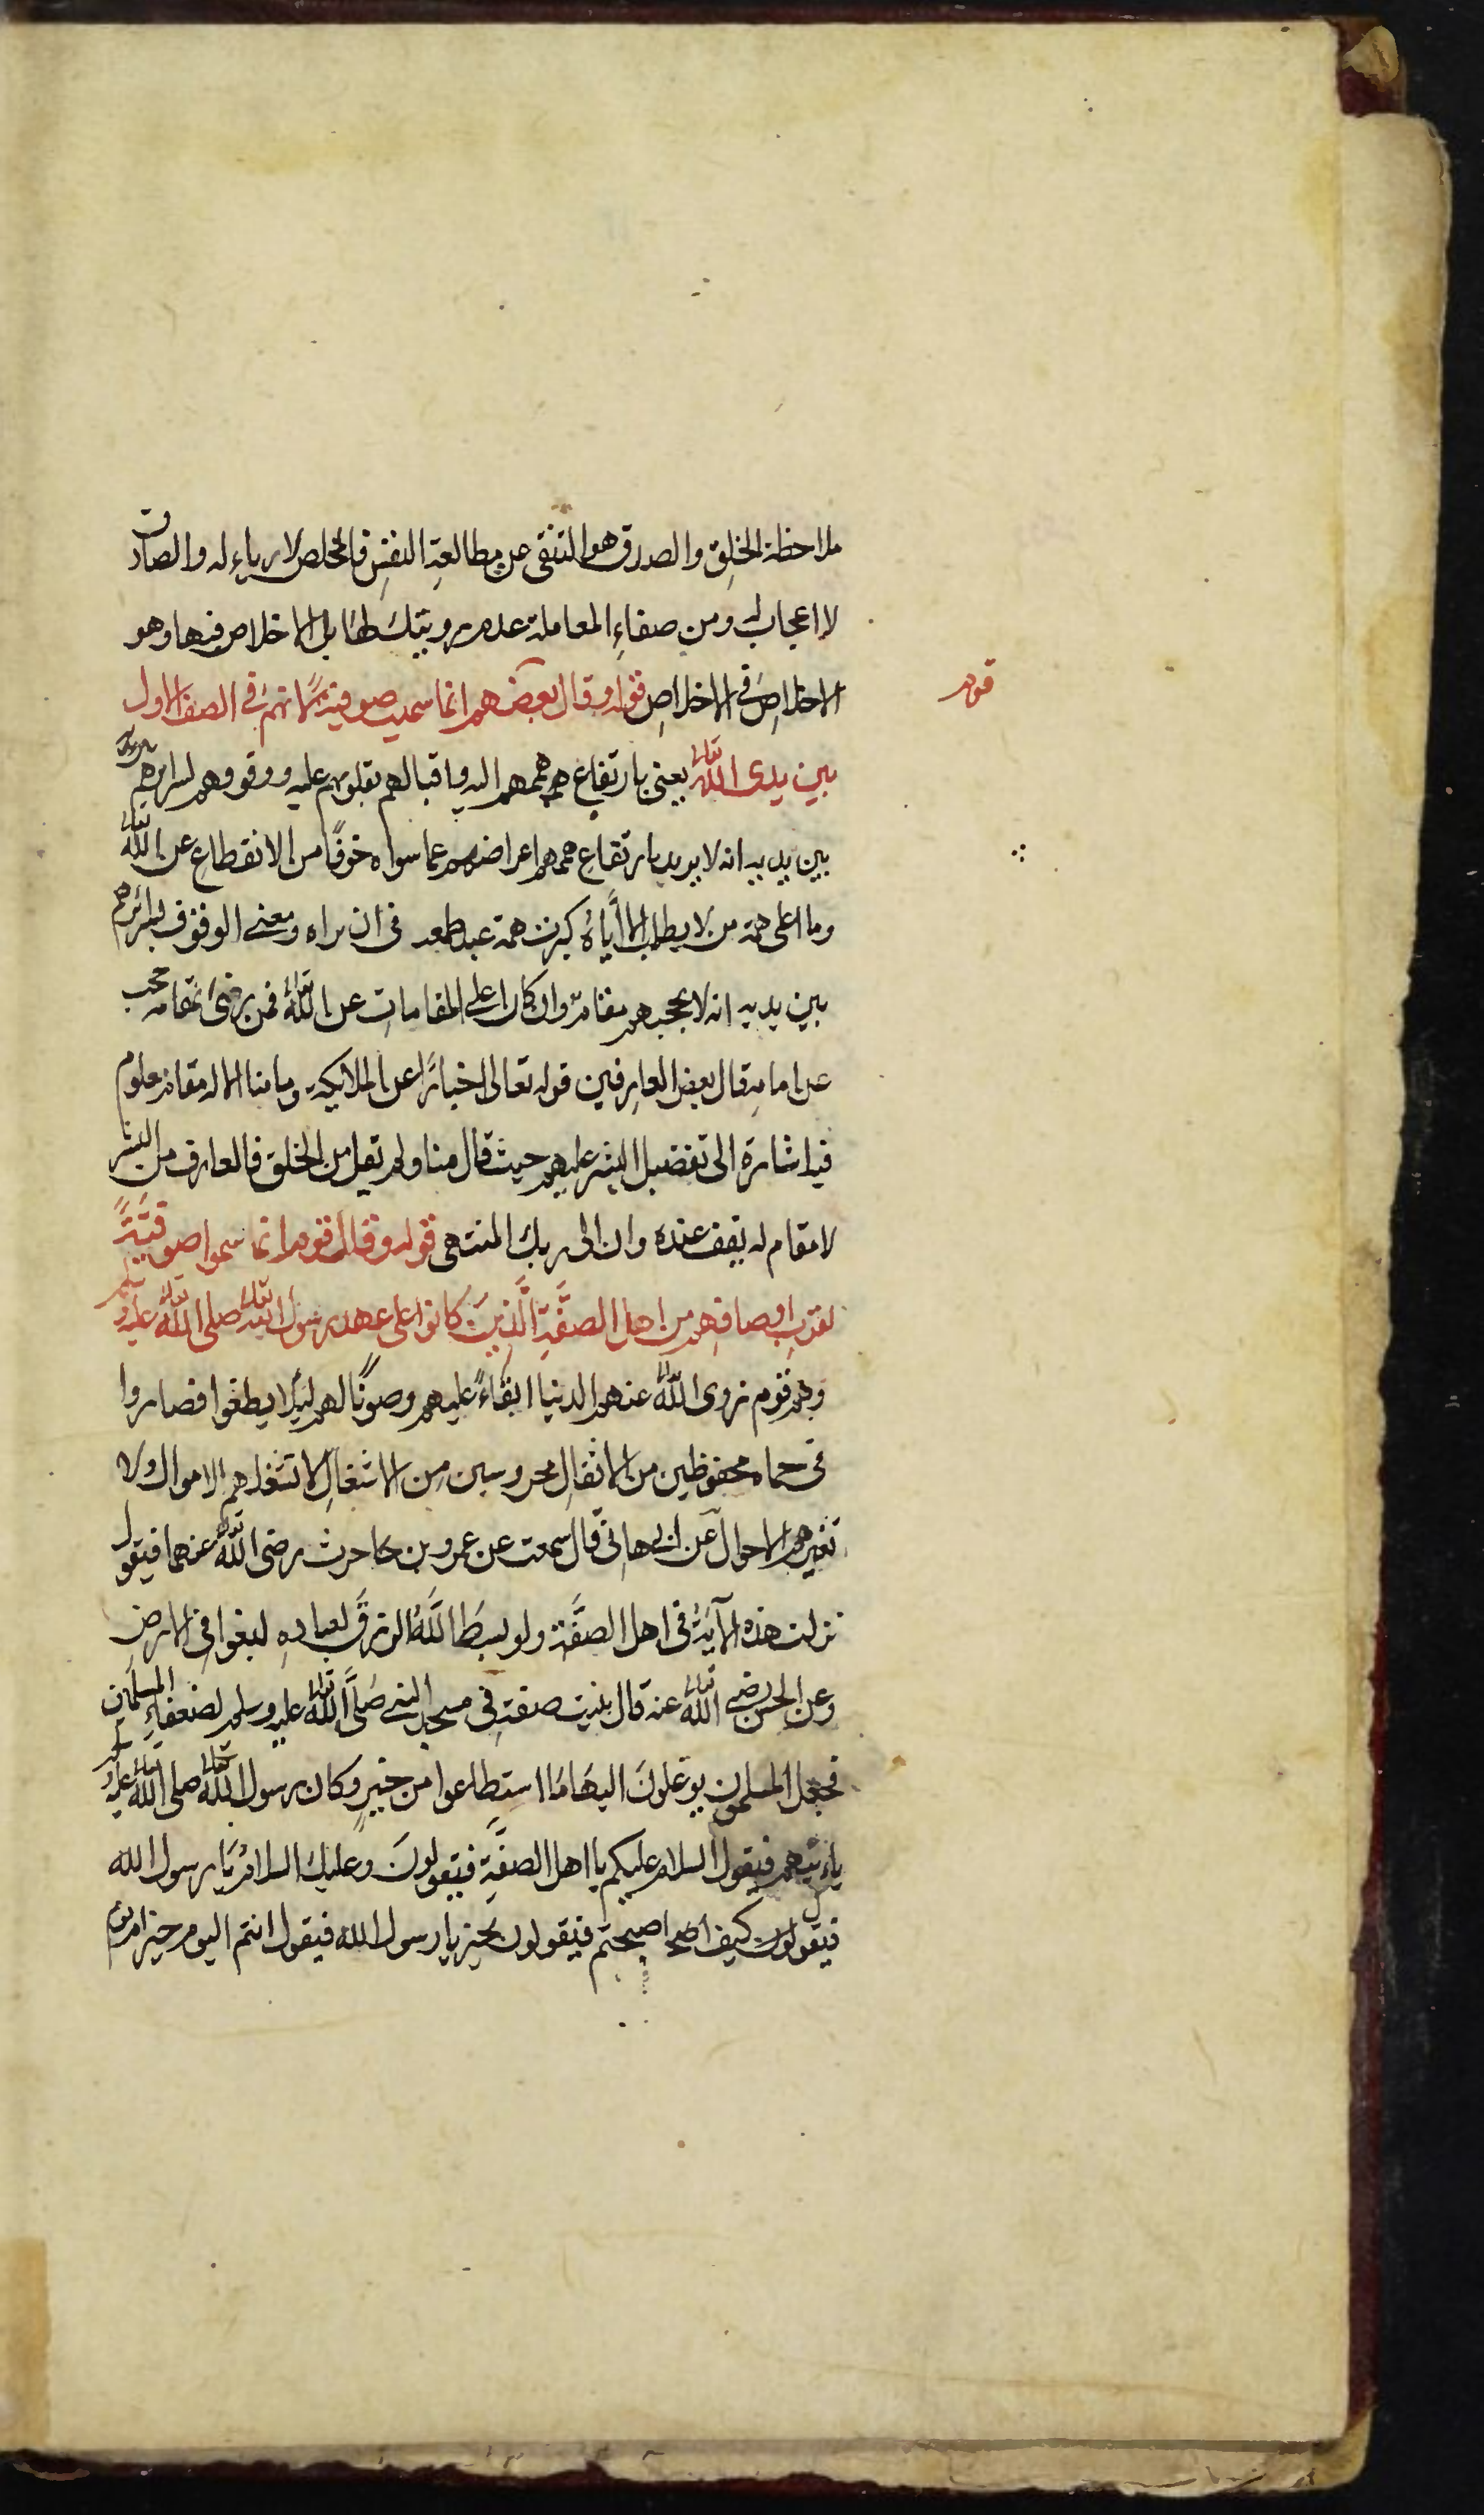 ملاحظة الخلق والصدق هو التنقى عن مطالعة النفس فالمخلص لا رياء له والصادق
لا اعجاب له ومن صفاء المعاملة عدم رويتك بل الاخلاص فيها وهو
الاخلاص في الاخلاص قوله وقال بعضهم انما سميت صوفية لانهم في الصف الاول
قوم
بين يدى الله تعالى يعنى بارتفاع هممهم اليه واقبالهم بقلوبهم عليه ووقوفهم بسرايرهم
بين يديه انه لا يريد بارتفاع هممهم اعراضهم عما سواه خوفًا من الانقطاع عن الله تعالى
وما اعلى همة من لا يطلب الا اياه كبرت همة عبد طمعت في ان يراه ومعنى الوقوف بسرائرهم
بين يديه انه لا يحجبهم مقام وان كان اعلى المقامات عن الله تعالى فمن رضى بمقامه حجب
عن امامه قال بعض العارفين قوله تعالى اخبارًا عن الملايكة وما منا الا له مقام معلوم
فيه اشارة الى تفضيل البشر عليهم حيث قال منا ولم يقل من الخلق فالعارف من البشر
لا مقام له يقف عنده وان الى ربك المنتهى قوله وقال قوم انما سموا صوفية
لقرب اوصافهم من اهل الصفَّة الَّذين كانوا على عهد رسول الله تعالى صلى الله تعالى عليه وسلم
وهم قوم زوى الله تعالى عنهم الدنيا ابقاءً عليهم وصونًا لهم ليلا يطغوا فصاروا
في حماه محفوظين من الاثقال محروسين من الاشغال لا تشغلهم الاموال ولا
تغيرهم الاحوال عن ابى هانى قال سمعت عن عمرو بن حارث رضى الله تعالى عنهما فيقول
نزلت هذه الآية في اهل الصفَّة ولو بسط اللّٰه الرزق لعباده لبغوا في الارض
وعن الحسن رضى الله تعالى عنه قال بنيت صفة في مسجد النبي صَلَّى الله تعالى عليه وسلم لضعفاء المسلمين
فجعل المسلمون يوغلونَ اليها ما استطاعوا من خير وكان رسول الله تعالى صلى الله تعالى عليه وسلم
ياءتيهم فيقول السلام عليكم يا اهل الصفَّة فيقولونَ وعليك السلام يا رسول الله
فيقول كيف اصبحتم فيقولون بخير يا رسول الله فيقول انتم اليوم خير ام يوم